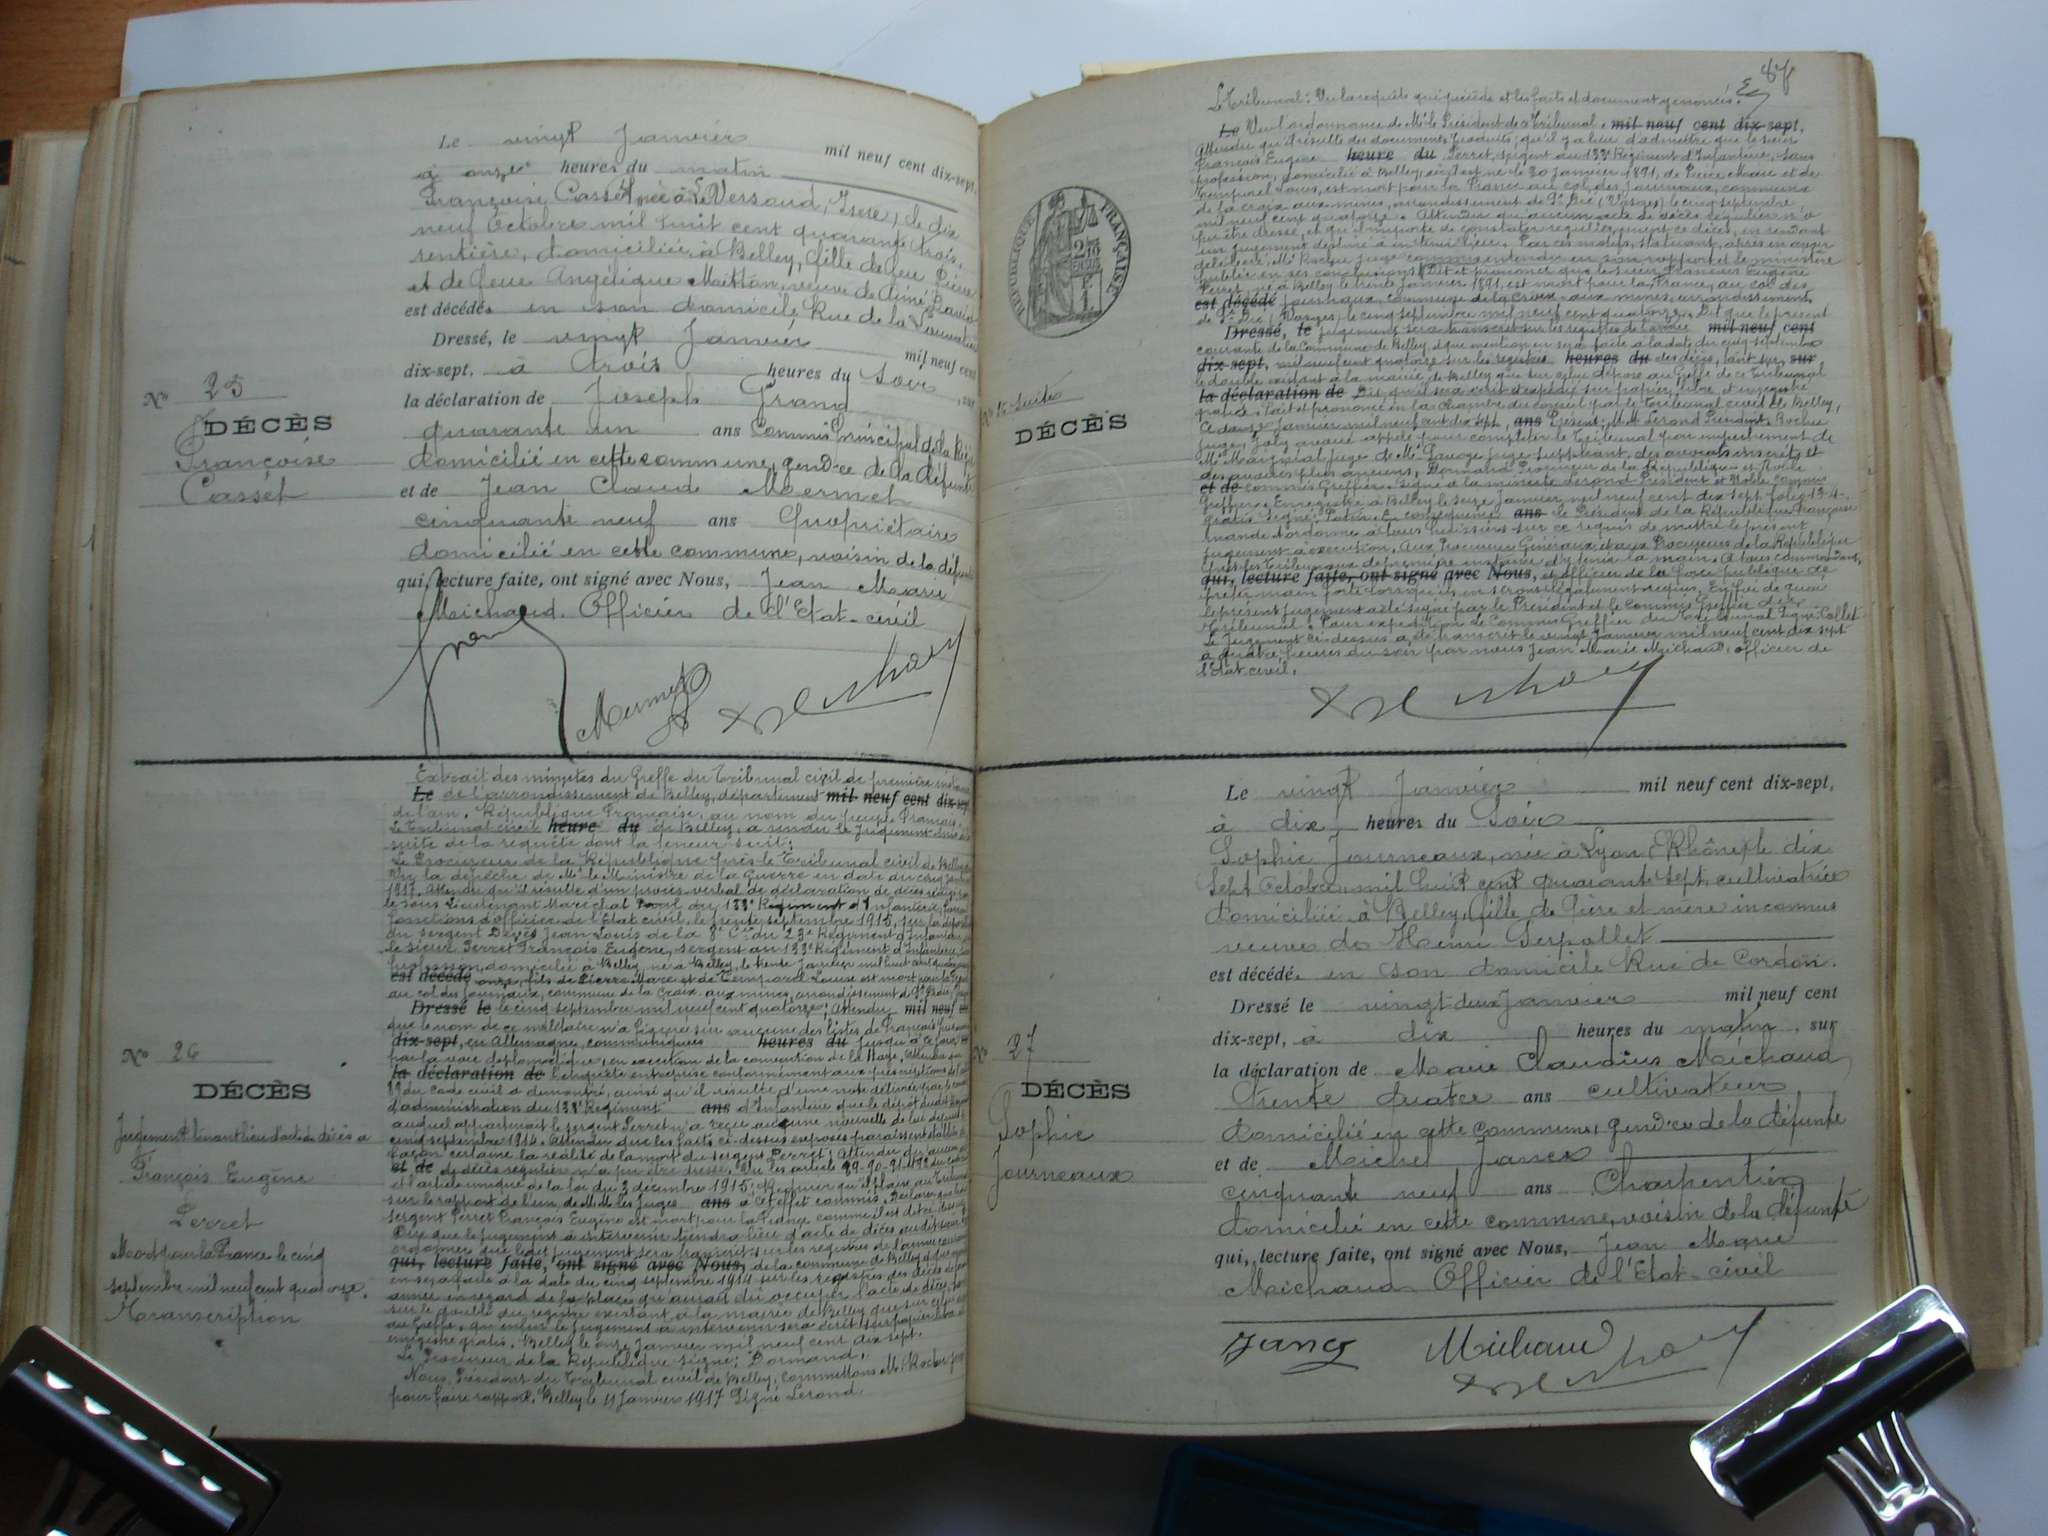 Le vingt Janvier mil neuf cent dix-sept,
à onze heures du matin
Françoise Cassét née à Le Versoud, Isère, le dix
neuf Octobre mil huit cent quarante trois,
rentière, domiciliée à Belley, fille de feu Pierre
et de feue Angélique Mitton, veuve de Aimé
est décédée en son domicile Rue de la
Dressé, le vingt Janvier mil neuf cent
dix-sept, à trois heures du soir, sur
la déclaration de Joseph Grand
quarante un ans Commis Principal de la
domicilié en cette commune, gendre de la défunte
et de Jean Claude Mermet
cinquante neuf ans Propriétaire
domicilié en cette commune, voisin de la défunte
qui, lecture faite, ont signé avec Nous, Jean Marie
Michaud Officier de l'Etat-civil
Mermet
N° 25
DÉCÈS
Françoise
Cassét
Extrait des minutes du Greffe du Tribunal civil de première
Le de l'arrondissement de Belley, département mil neuf cent dix-sept
de l'ain. République Française, au nom du peuple Français.
Le Tribunal civil heure du de Belley, a rendu le jugement
suite de la requête dont la teneur suit:
Le Procureur de la République près le Tribunal civil de Belley
Vu la dépêche de Mr le Ministre de la Guerre en date du cinq
1917. Attendu qu'il résulte d'un procès-verbal de déclaration de décès
le sous Lieutenant Maréchal du 133e Régiment d'Infanterie,
fonctions d'officier de l'Etat civil, le trente septembre 1915, sur la
du sergent Deyès Jean Louis de la 8e Cie du 23e Régiment d'Infanterie
le sieur Perret François Eugène, sergent au 133e Régiment d'Infanterie
profession, domicilié à Belley, né à Belley, le trente Janvier mil huit cent
est décédé onze, fils de Pierre Marc et de Temporal Louise est mort pour la
au col des Journaux, commune de la Croix aux mines, arrondissement de St Dié,
Dressé le le cinq septembre mil neuf cent quatorze; Attendu mil neuf cent
que le nom de ce militaire n'a figuré sur aucune des listes de Français
dix-sept, en Allemagne, communiquées heures du jusqu'à ce jour
par la voie diplomatique, en exécution de la convention de la Haye, Attendu que
la déclaration de l'enquête entreprise conformément aux prescriptions de
du code civil a démontré, ainsi qu'il résulte d'une note délivrée par le
d'administration du 133e Régiment ans d'Infanterie que le dépôt dudit
auquel appartenait le sergent Perret n'a reçu aucune nouvelle de lui depuis le
cinq septembre 1914. Attendu que les faits ci-dessus exposés paraissent établir
façon certaine la réalité de la mort du sergent Perret; Attendu
et de de décès régulier n'a pu être dressé, Vu les articles 89-90-91-92 du
et l'article unique de la loi du 3 décembre 1915; Requiert qu'il plaise au Tribunal
sur le rapport de l'un de MM les Juges ans à cet effet commis, Déclarer que le
sergent Perret François Eugène est mort pour la France comme il est dit ci-dessus
Dire que le jugement à intervenir tiendra lieu d'acte de décès audit
ordonner que ledit jugement sera transcrit sur les registres de l'année
qui, lecture faite, ont signé avec Nous, de la commune de Belley
en sera faite à la date du cinq septembre 1914 sur les registres des décès
année en regard de la place qu'aurait dû occuper l'acte de décès
sur le double du registre existant à la mairie de Belley que sur
au Greffe, qu'enfin le jugement à intervenir sera
enregistré gratis. Belley le onze Janvier mil neuf cent dix sept.
Le Procureur de la République signé: Dormand.
Nous, Président du Tribunal civil de Belley, commettons Mr Rochu
pour faire rapport. Belley le 11 Janvier 1917 Signé Lerond.
N° 26
DÉCÈS
Jugement tenant lieu d'acte de décès à
François Eugène
Perret
Mort pour la France le cinq
septembre mil neuf cent quatorze.
Transcription
87
RÉPUBLIQUE FRANÇAISE
Le Tribunal: Vu la requête qui précède et les faits et document y énoncés.
Le Vu l'ordonnance de Mr le Président de ce Tribunal. mil neuf cent dix-sept,
Attendu qu'il résulte des documents produits, qu'il y a lieu d'admettre que le sieur
François Eugène heure du Perret, sergent au 133e Régiment d'Infanterie, sans
profession, domicilié à Belley, né le 30 Janvier 1891, de Pierre Marc et de
Temporal Louise, est mort pour la France au col des Journaux, commune
de la croix aux mines, arrondissement de St Dié (Vosges) le cinq septembre
mil neuf cent quatorze. Attendu qu'aucun acte de décès régulier n'a
pu être dressé, et qu'il importe de constater régulièrement ce décès, en rendant
un jugement destiné à en tenir lieu. Par ces motifs, statuant, après en avoir
délibéré Mr Rochu Juge commis entendu en son rapport et le ministère
public en ses conclusions, Dit et prononce que le sieur François Eugène
Perret, né à Belley le trente Janvier 1891, est mort pour la France, au col des
est décédé Journaux, commune de la Croix aux mines, arrondissement
de St Dié (Vosges) le cinq septembre mil neuf cent quatorze. Dit que le présent
Dressé, le jugement sera transcrit sur les registres de l'année mil neuf cent
courante de la Commune de Belley, et que mention en sera faite à la date du cinq septembre
dix-sept, mil neuf cent quatorze sur les registres heures du des décès, tant sur sur
le double existant à la mairie de Belley que sur celui déposé au Greffe de ce Tribunal
la déclaration de Dit qu'il sera visé et expédié sur papier libre et enregistré
gratis. Fait et prononcé en la Chambre du conseil par le Tribunal civil de Belley,
ce douze Janvier mil neuf cent dix sept, ans Présents: MM. Lerond Président, Rochu
Juge, Joly avoué appelé pour compléter le Tribunal par empêchement de
et de commis Greffier. Signé à la minute Lerond Président et
Greffier. Enregistré à Belley le seize Janvier mil neuf cent dix sept folio 13-4-
gratis signé: Patin. En conséquence ans le Président de la République Française
mande et ordonne à tous huissiers sur ce requis de mettre le présent
jugement à exécution. Aux Procureurs Généraux et aux Procureurs de la République
près les Tribunaux de première instance d'y tenir la main. A tous commandants
qui, lecture faite, ont signé avec Nous, et officiers de la force publique de
prêter main forte lorsqu'ils en seront légalement requis. En foi de quoi
le présent jugement a été signé par le Président et le commis Greffier du
Tribunal. Pour expédition le Commis Greffier du Tribunal signé: Collet.
Le Jugement ci-dessus a été transcrit le vingt Janvier mil neuf cent dix sept
à quatre heures du soir par nous Jean Marie Michaud, officier de
l'Etat civil.
N° 26 Suite
DÉCÈS
Le vingt Janvier mil neuf cent dix-sept,
à dix heures du soir
Sophie Journeaux, née à Lyon (Rhône) le dix
sept Octobre mil huit cent quarante sept, cultivatrice
domiciliée à Belley, fille de Père et mère inconnus
veuve de Henri Serpollet
est décédée en son domicile Rue de Cordon.
Dressé le vingt-deux Janvier mil neuf cent
dix-sept, à dix heures du matin, sur
la déclaration de Marie Claudius Michaud
trente quatre ans cultivateur
domicilié en cette commune, gendre de la défunte
et de Michel Janex
cinquante neuf ans Charpentier
domicilié en cette commune, voisin de la défunte
qui, lecture faite, ont signé avec Nous, Jean Marie
Michaud Officier de l'Etat-civil
Janex Michaud
N° 27
DÉCÈS
Sophie
Journeaux